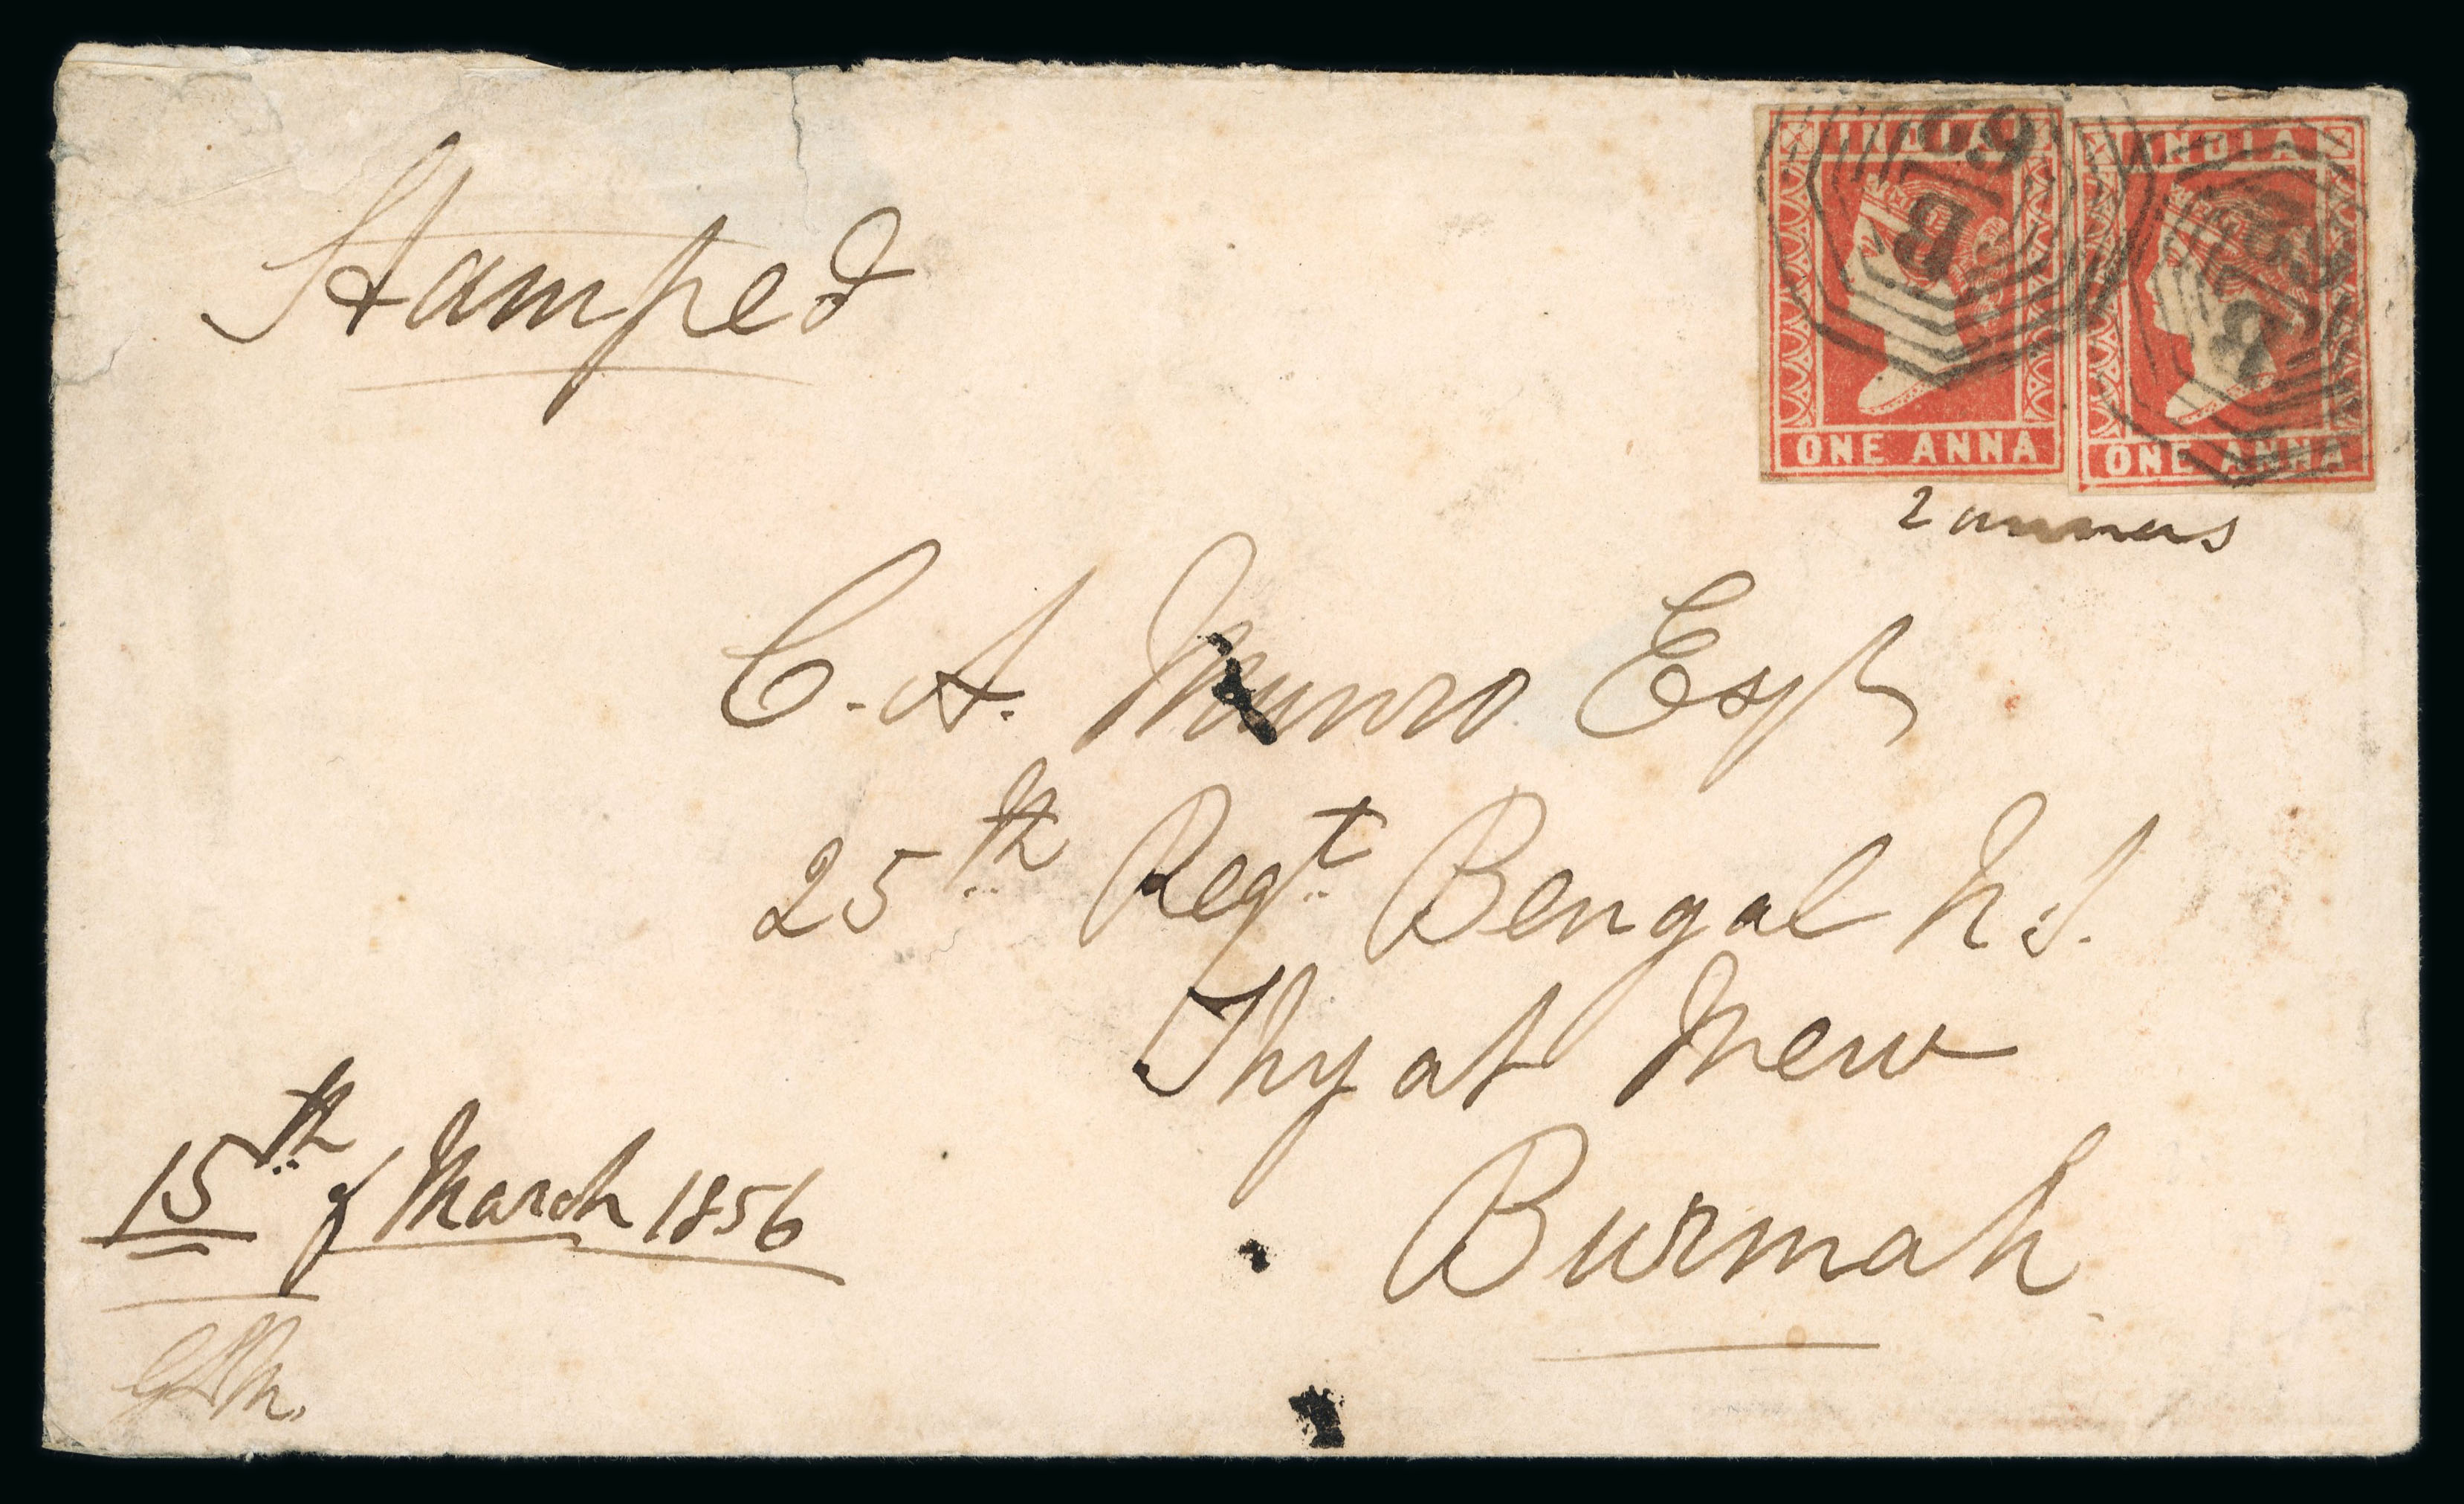 Stamped
INDIA INDIA
B
62
ONE ANNA ONE ANNA
2 annas
C. A. Munro Esqr
25th Regt Bengal N.I.
Thyat Mew
Burmah
15th of March 1856